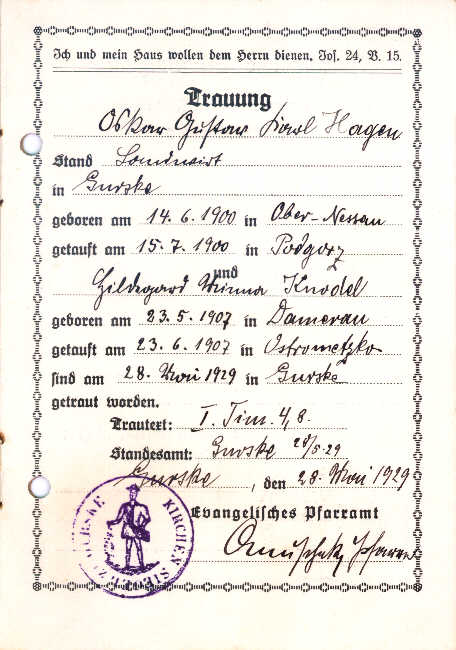 Ich und mein Haus wollen dem Herrn dienen. Jos. 24, V. 15.
Trauung
Oskar Gustav Karl Hagen
Stand Landwirt
in Gurske
geboren am 14. 6. 1900 in Ober-Nessau
getauft am 15. 7. 1900 in Podgorz
und
Hildegard Minna Knodel
geboren am 23. 5. 1907 in Damerau
getauft am 23. 6. 1907 in Ostrometzko
sind am 28. Mai 1929 in Gurske
getraut worden.
Trautext: I. Tim. 4, 8.
Standesamt: Gurske 28/5.29
Gurske, den 28. Mai 1929
Evangelisches Pfarramt
Pfarrer
GURSKE KIRCHEN